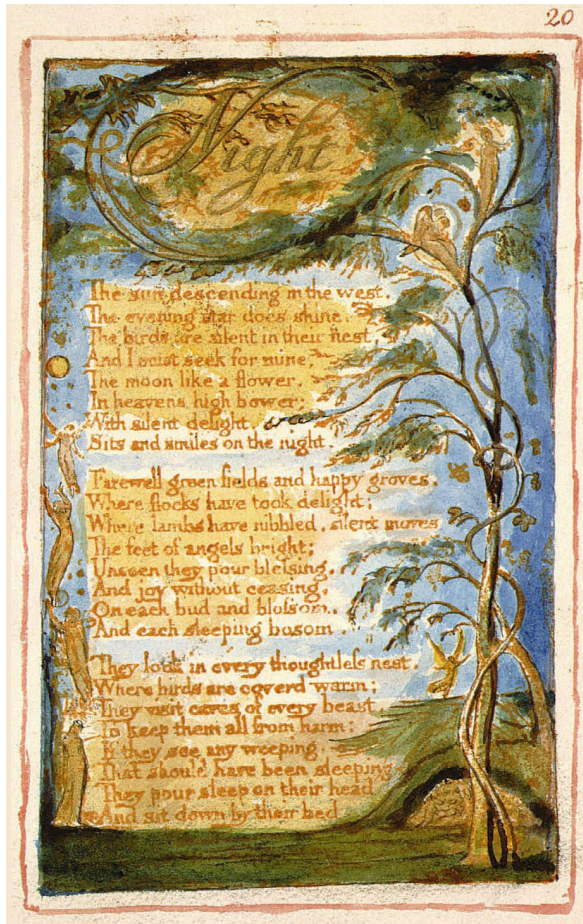 20
Night
The sun descending in the west.
The evening star does shine.
The birds are silent in their nest,
And I must seek for mine,
The moon like a flower,
In heavens high bower;
With silent delight,
Sits and smiles on the night.
Farewell green fields and happy groves,
Where flocks have took delight;
Where lambs have nibbled, silent moves
The feet of angels bright;
Unseen they pour blefsing,
And joy without ceasing,
On each bud and blofsom,
And each sleeping bosom.
They look in every thoughtlefs nest.
Where birds are coverd warm;
They visit caves of every beast,
To keep them all from harm:
If they see any weeping,
That should have been sleeping
They pour sleep on their head
And sit down by their bed